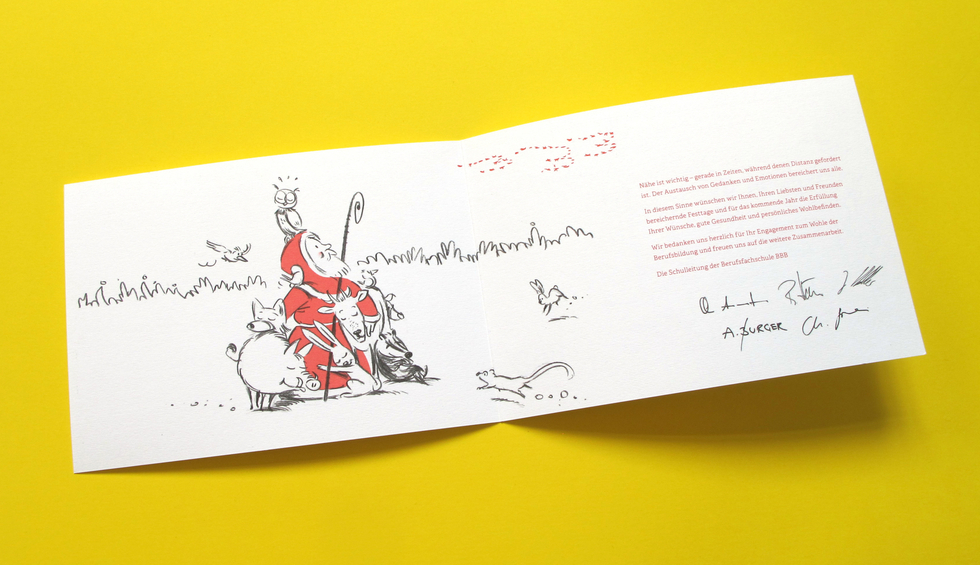 Nähe ist wichtig – gerade in Zeiten, während denen Distanz gefordert
ist. Der Austausch von Gedanken und Emotionen bereichert uns alle.
In diesem Sinne wünschen wir Ihnen, Ihren Liebsten und Freunden
bereichernde Festtage und für das kommende Jahr die Erfüllung
Ihrer Wünsche, gute Gesundheit und persönliches Wohlbefinden.
Wir bedanken uns herzlich für Ihr Engagement zum Wohle der
Berufsbildung und freuen uns auf die weitere Zusammenarbeit.
Die Schulleitung der Berufsfachschule BBB
A. BURGER